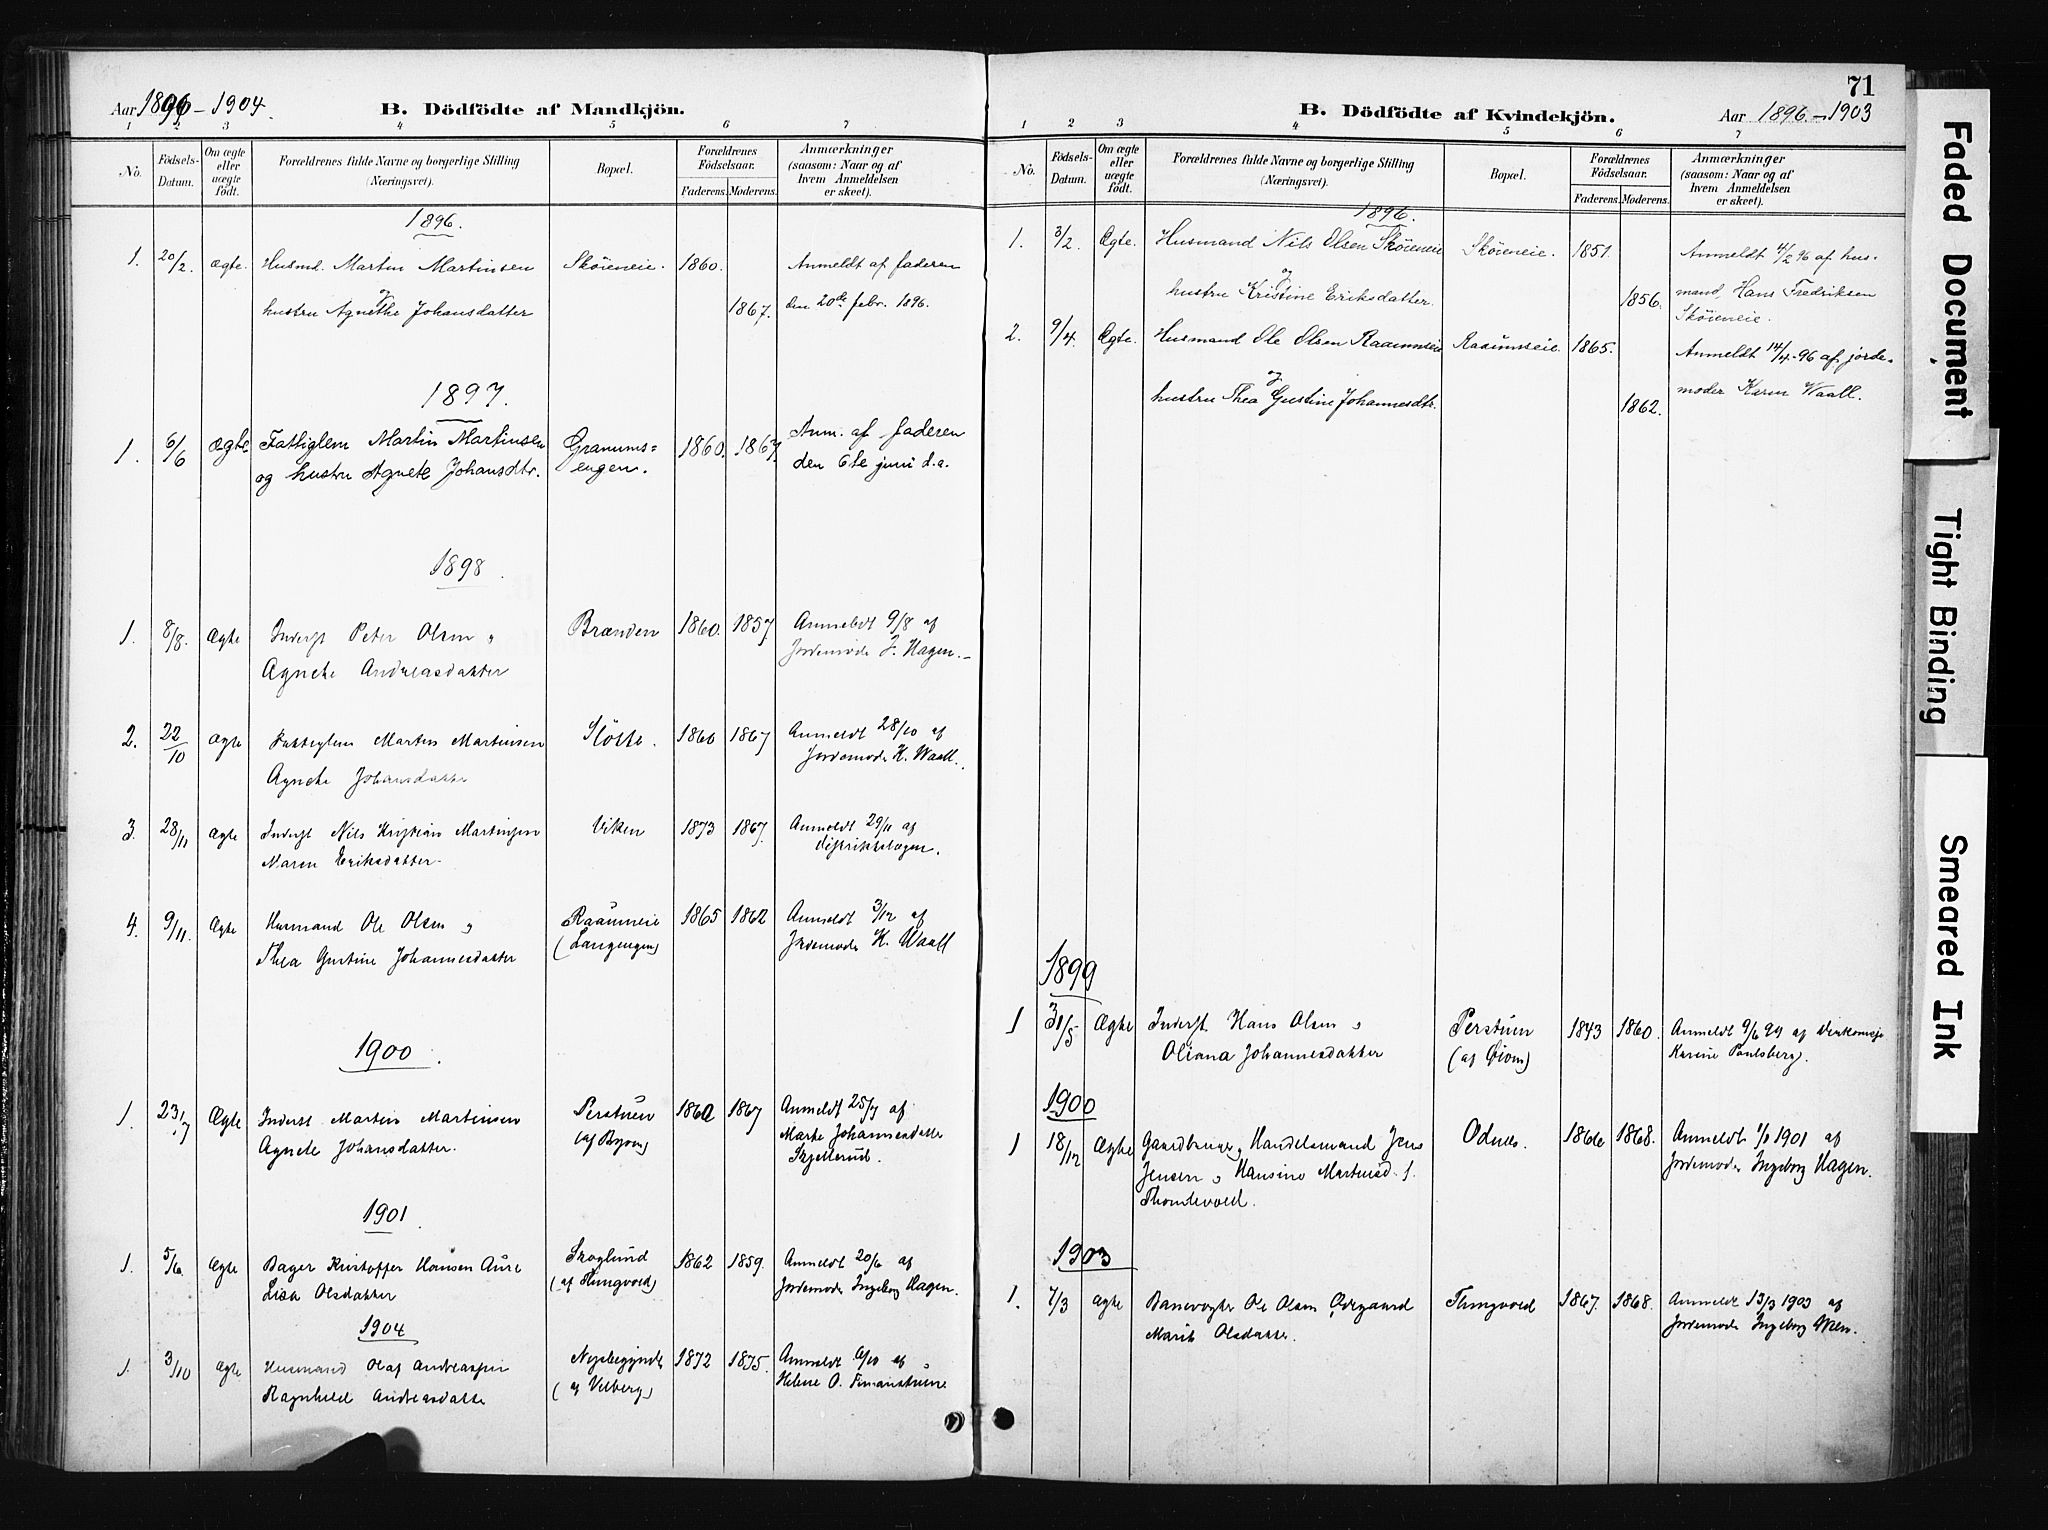 Aar 1896 - 1904.
B. Dödfödte af Mandkjön.
1 2 3 4 5 6 7
No.
Födsels-Datum.
Om ægte eller uægte födt.
Forældrenes fulde Navne og borgerlige Stilling
(Næringsvei).
Bopæl.
Forældrenes Födselsaar.
Faderens. Moderens.
Anmærkninger
(saasom: Naar og af
hvem Anmeldelsen
er skeet).
1896.
1. 20/2. ægte. Husmd. Martin Martinsen Skøieneie. 1860. Anmeldt af faderen
og
hustru Agnethe Johansdatter 1867. den 20de febr. 1896.
1897.
1. 6/6 ægte Fattiglem Martin Martinsen Granums- 1860. 1867. Anm. af faderen
og hustru Agnete Johansdtr. engen. den 6te juni d.a.
1898.
1. 8/8. Ægte Inderst Peter Olsen Brænden 1860. 1857 Anmeldt 9/8 af
Agnete Andreasdatter Jordemoder J. Hagen.
2. 22/10 ægte Fattiglem Martin Martinsen Sløtte. 1860 1867 Anmeldt 28/10 af
Agnete Johansdatter Jordemoder K. Waall.
3. 28/11 ægte Inderst Nils Kristian Martinsen Viken 1873 1867. Anmeldt 29/11 af
Maren Eriksdatter. distriktslægen.
4. 9/11. Ægte Husmand Ole Olsen Raaumseie 1865 1862 Anmeldt 3/12 af
Thea Gustine Johannesdatter (Langengen) Jordemoder K. Waall
1900.
1. 23/7 Ægte Inderst Martin Martinsen Perstuen 1860 1867 Anmeldt 25/7 af
Agnete Johansdatter. Marte Johannesdatter
Skjellerud.
1901.
1. 5/6. Ægte Bager Kristoffer Hansen Aure Skoglund 1862 1859. Anmeldt 20/6 af
Lisa Olsdatter (af Thingvold) Jordemoder Ingeborg Hagen.
1904
1. 3/10 ægte Husmand Olaf Andreassen 1872 1875. Anmeldt 6/10 af
Ragnhild Andreasdatter (af Velberg) Helene O.
71
B. Dödfödte af Kvindekjön.
Aar 1896 - 1903
1 2 3 4 5 6 7
No.
Födsels-Datum.
Om ægte eller uægte födt.
Forældrenes fulde Navne og borgerlige Stilling
(Næringsvei).
Bopæl.
Forældrenes Födselsaar.
Faderens. Moderens.
Anmærkninger
(saasom: Naar og af
hvem Anmeldelsen
er skeet).
1896.
1. 3/2. Ægte. Husmand Nils Olsen Skøieneie Skøieneie. 1851. Anmeldt 4/2 96 af hus-
og
hustru Kristine Eriksdatter. 1856. mand, Hans Fredriksen
Skøieneie.
2. 9/4. Ægte. Husmand Ole Olsen Raaumseie Raaumseie. 1865. Anmeldt 14/4-96 af jorde-
og
hustru Thea Gustine Johannesdtr. 1862. moder Karen Waall.
1899
1 31/5 Ægte Inderst Hans Olsen Perstuen 1843 1860. Anmeldt 9/6 99 af
Oliana Johannesdatter Karine Paulsberg.
1900
1 18/12 Ægte Gaardbruger, Handelsmand Jens Odnes. 1866 1868. Anmeldt 1/1 1901 af
Jensen Hansine Jordemoder Ingeborg Hagen.
1903
1. 7/3 ægte Banevogter Ole Olsen Ødegaard Thingvold 1867. 1868. Anmeldt 13/3 1903 af
Marit Olsdatter. Jordemoder Ingeborg
Faded Document
Tight Binding
Smeared Ink